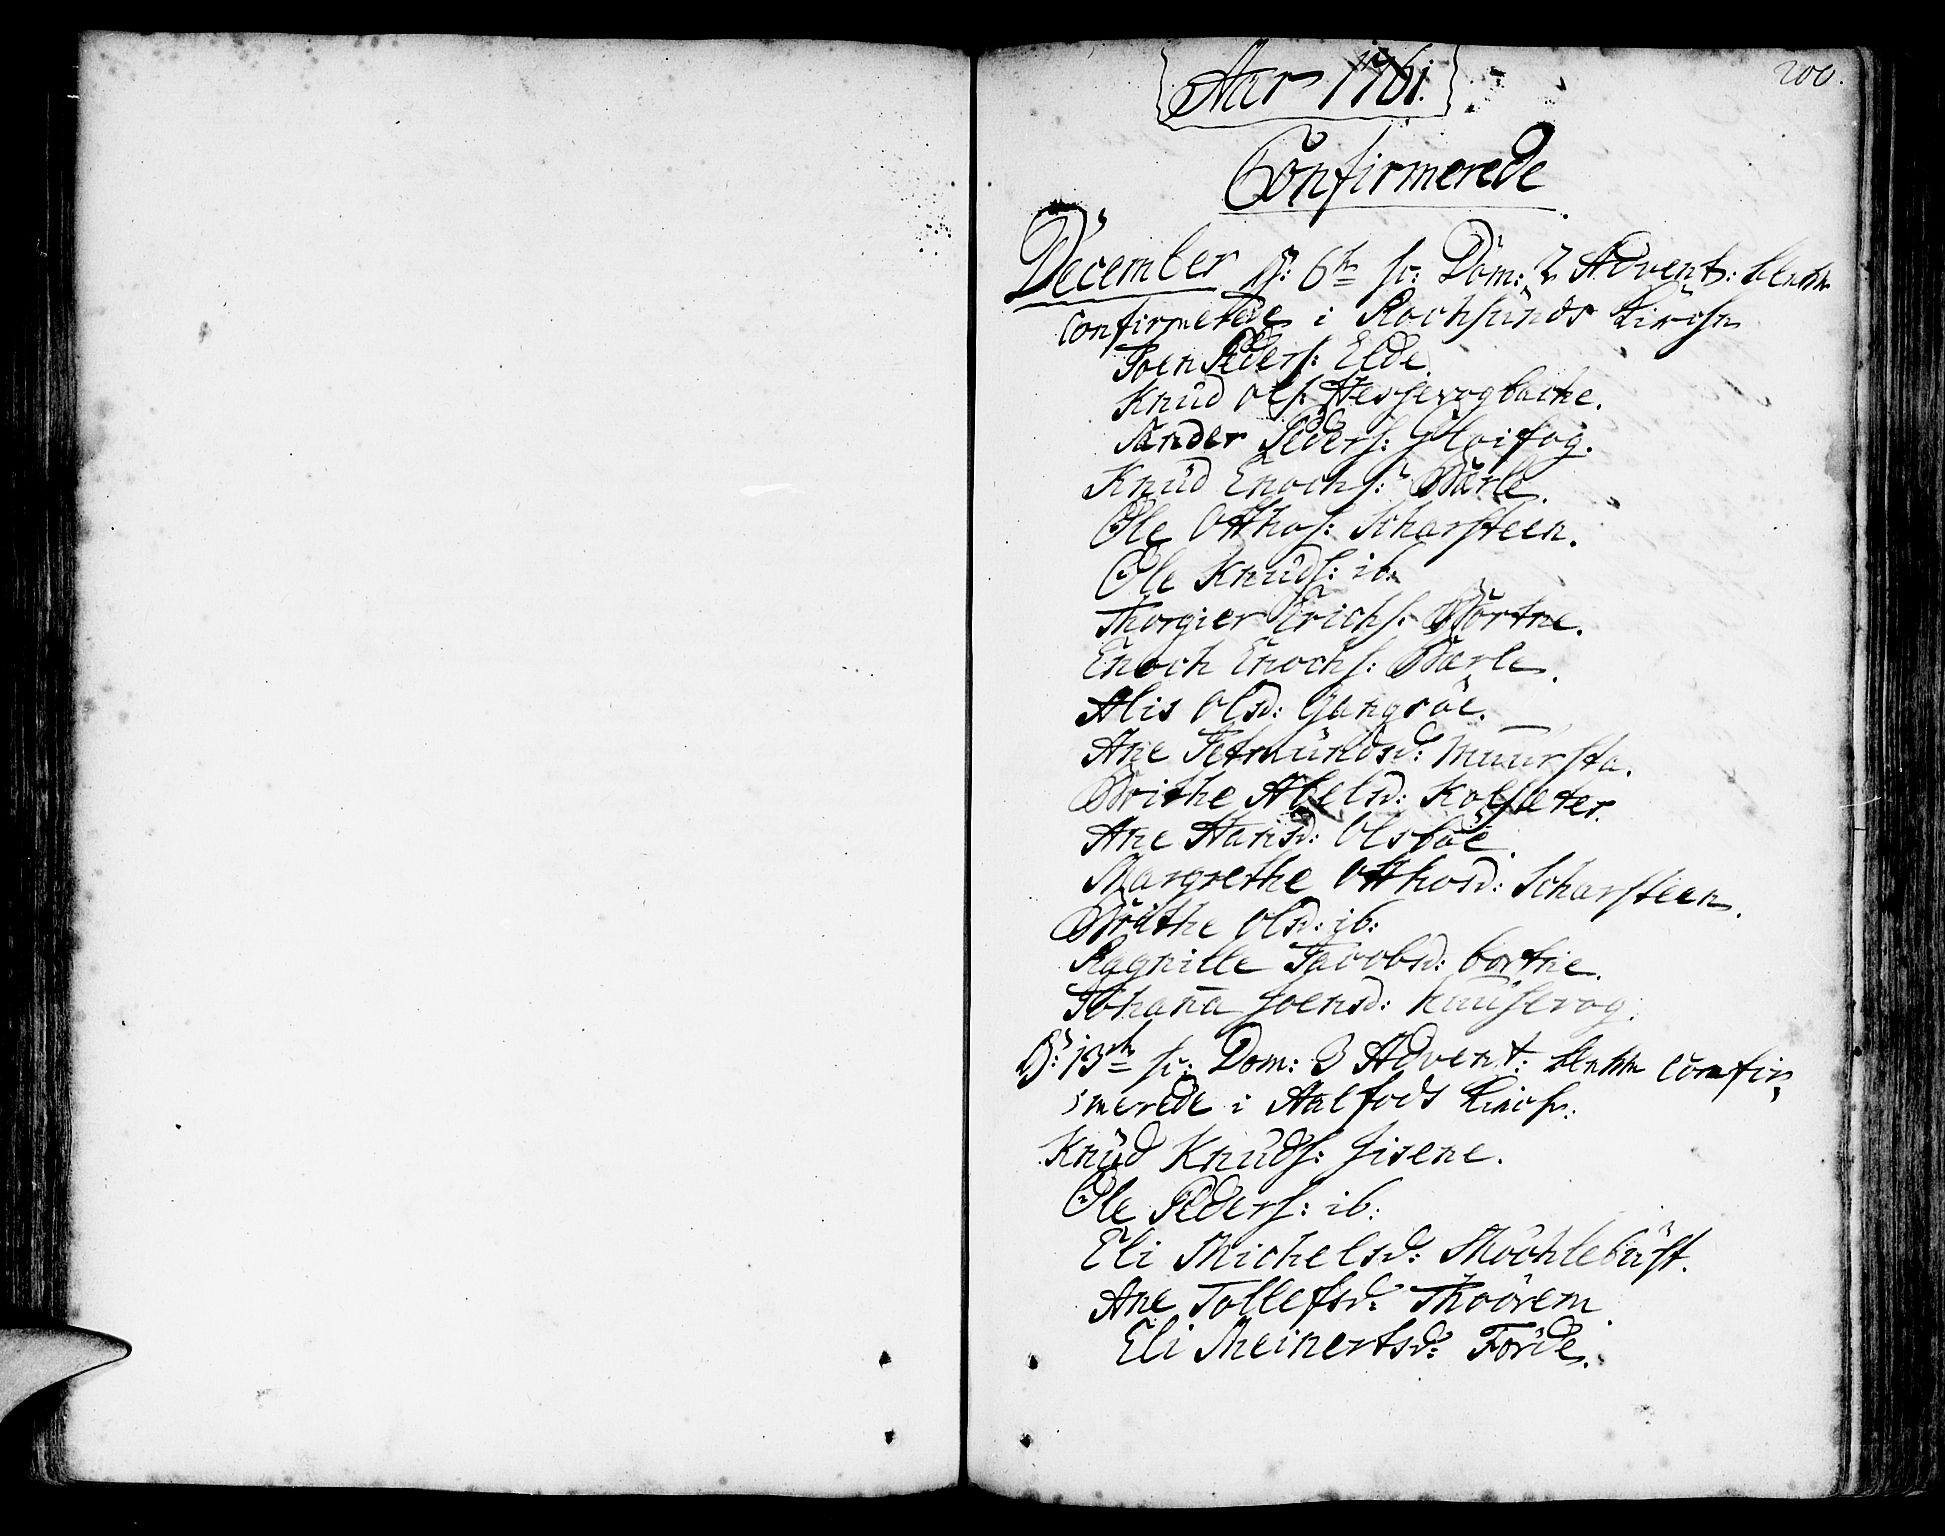 200.
Aar 1761.
Confirmerede
December D: 6te sc: Dom: 2 Advent: blev
confirmerede i Rochsunds Kirche
Joen Peders: Elde.
Knud Ols: Hessevogbache.
Sander Peders:
Knüd Enochs: Bærle.
Ole Otthos: Scharsteen.
Ole Knuds: ib:
Thorgier Erichs: Bortne.
Enoch Enochs: Bærle.
Alis Olsd: Gangsöe.
Ane Getmundsd: Muursta.
Brithe Abelsd: Kolseter.
Ane Hansd: Olsböe.
Margrethe Otthosd: Scharsteen.
Brithe Olsd: ib:
Ragnille Jacobsd: bortne.
Johana Joensd: huusevog.
D: 13te sc: Dom: 3 Advent: blev confir
merede i Aalfods Kirch:
Knüd Knuds: Jisene.
Ole Peders: ib:
Eli Michelsd: Mychlebust.
Ane Tollefsd:
Eli Meinertsd: Förde.